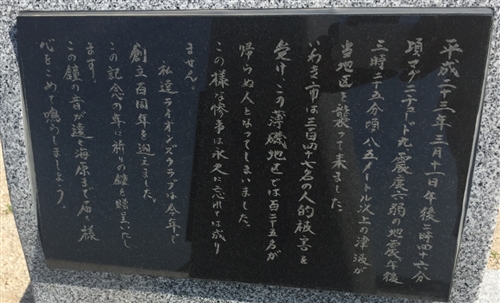 平成二十三年三月十一日午後二時四十六分
頃マグニチュード九、震度六弱の地震の後
三時二十五分頃八.五メートル以上の津波が
当地区を襲って来ました。
いわき市は三百四十七名の人的被害を
受け、この薄磯地区では百二十五名が
帰らぬ人となってしまいました。
この様な惨事は永久に忘れては成り
ません。
私達ライオンズクラブは今年で
創立百周年を迎えました。
この記念の年に祈りの鐘を贈呈いたし
ます。
この鐘の音が遠く海原まで届く様
心をこめて鳴らしましょう。